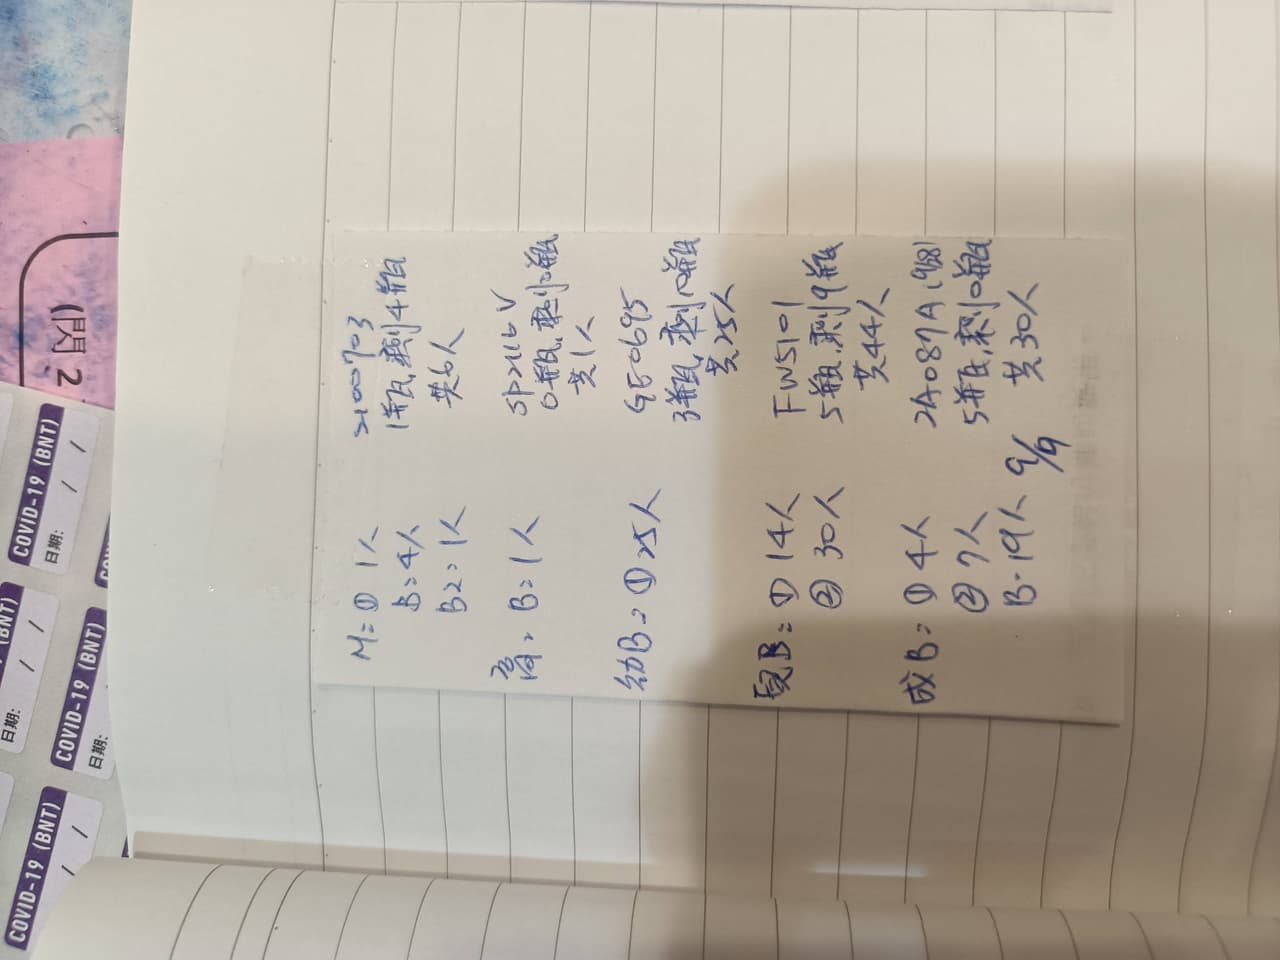 M=① 1人
2100703
B=4人
1瓶,剩4瓶
B2=1人
共6人
高=B=1人
SP2116V
0瓶,剩10瓶
共1人
幼B=①25人
GE0695
3瓶,剩10瓶
共25人
兒B=① 14人
FW5101
② 30人
5瓶,剩9瓶
共44人
成B=① 4人
2A087A
② 7人
5瓶,剩10瓶
B=19人
共30人
9/9
(閃) 2
COVID-19 (BNT)
日期: / /
COVID-19 (BNT)
日期: / /
COVID-19 (BNT)
/ /
(BNT)
日期: / /